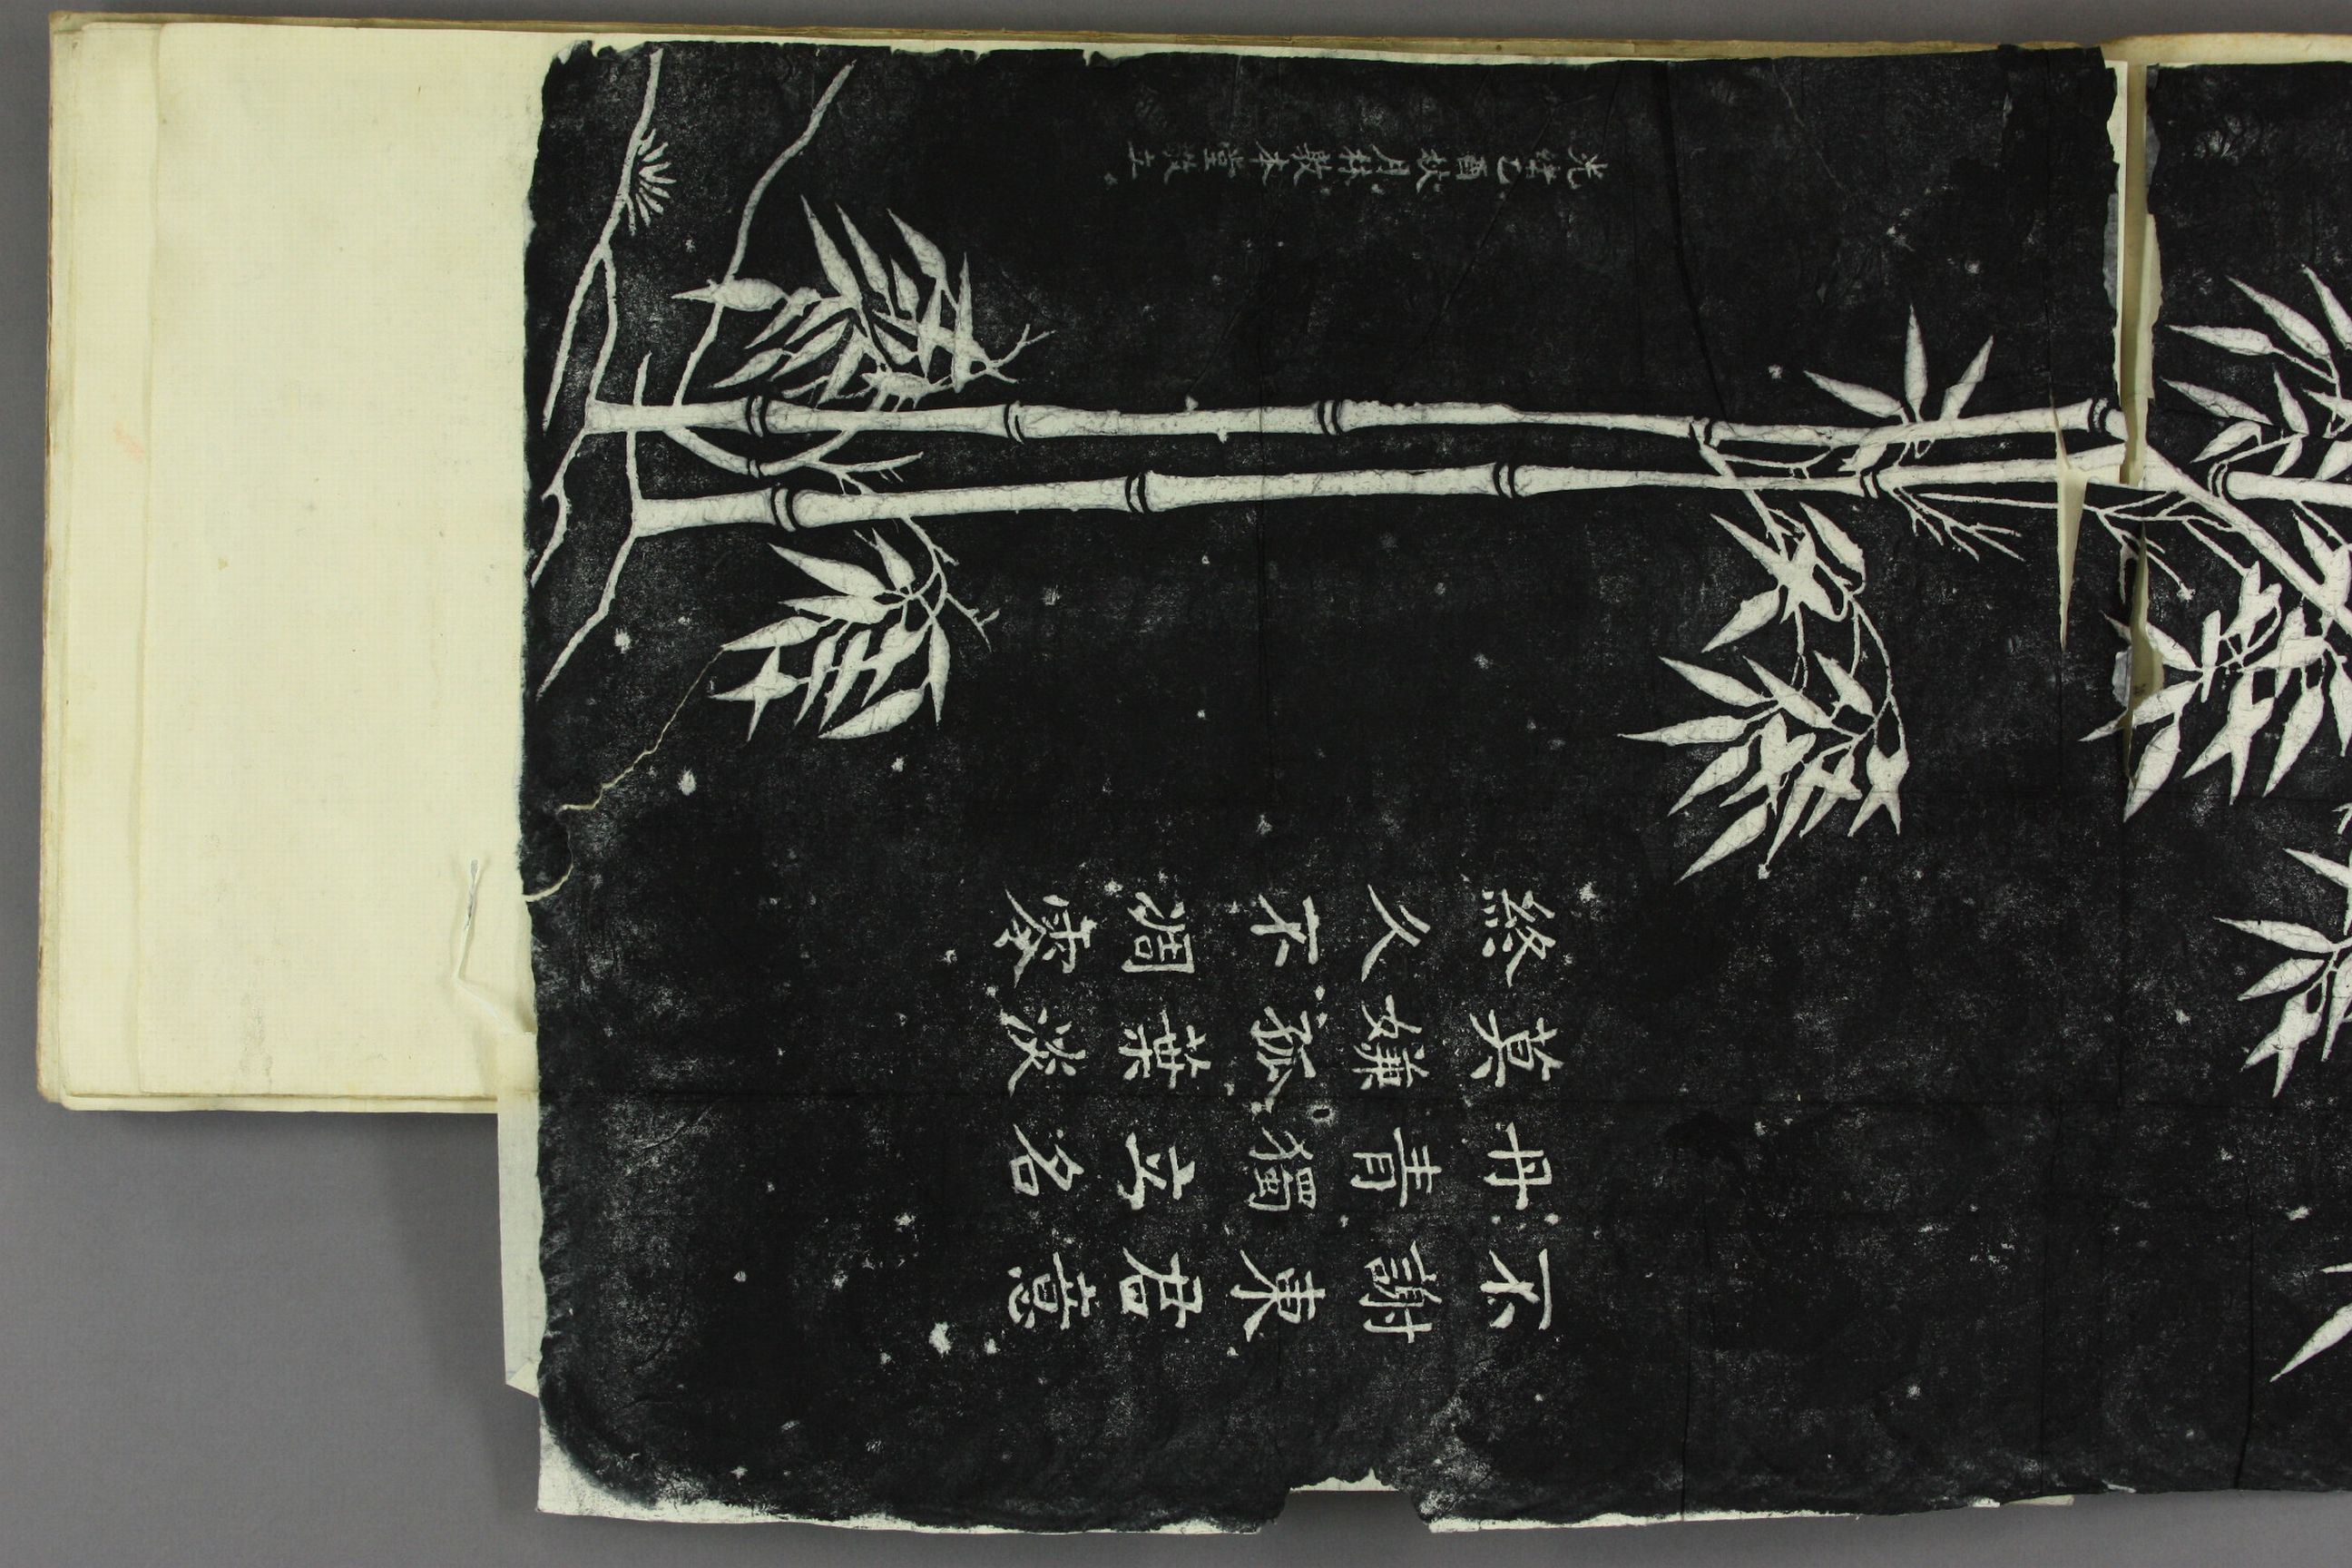 不謝東君意
丹青獨立名
莫嫌孤葉淡
終久不凋零
光緒乙酉秋月林敬本堂敬立